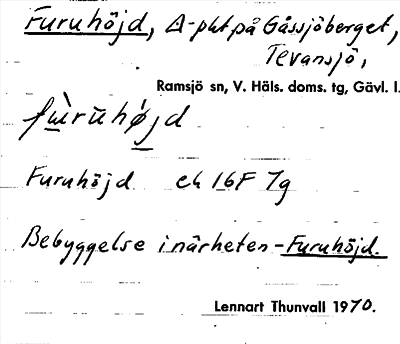 Furuhöjd, △-pkt på Gåssjöberget,
Tevansjö,
Ramsjö sn, V. Häls. doms. tg, Gävl. l.
fù̱rūhǿ̱jd
Furuhöjd ek 16F 7g
Bebyggelse i närheten - Furuhöjd.
Lennart Thunvall 1970.